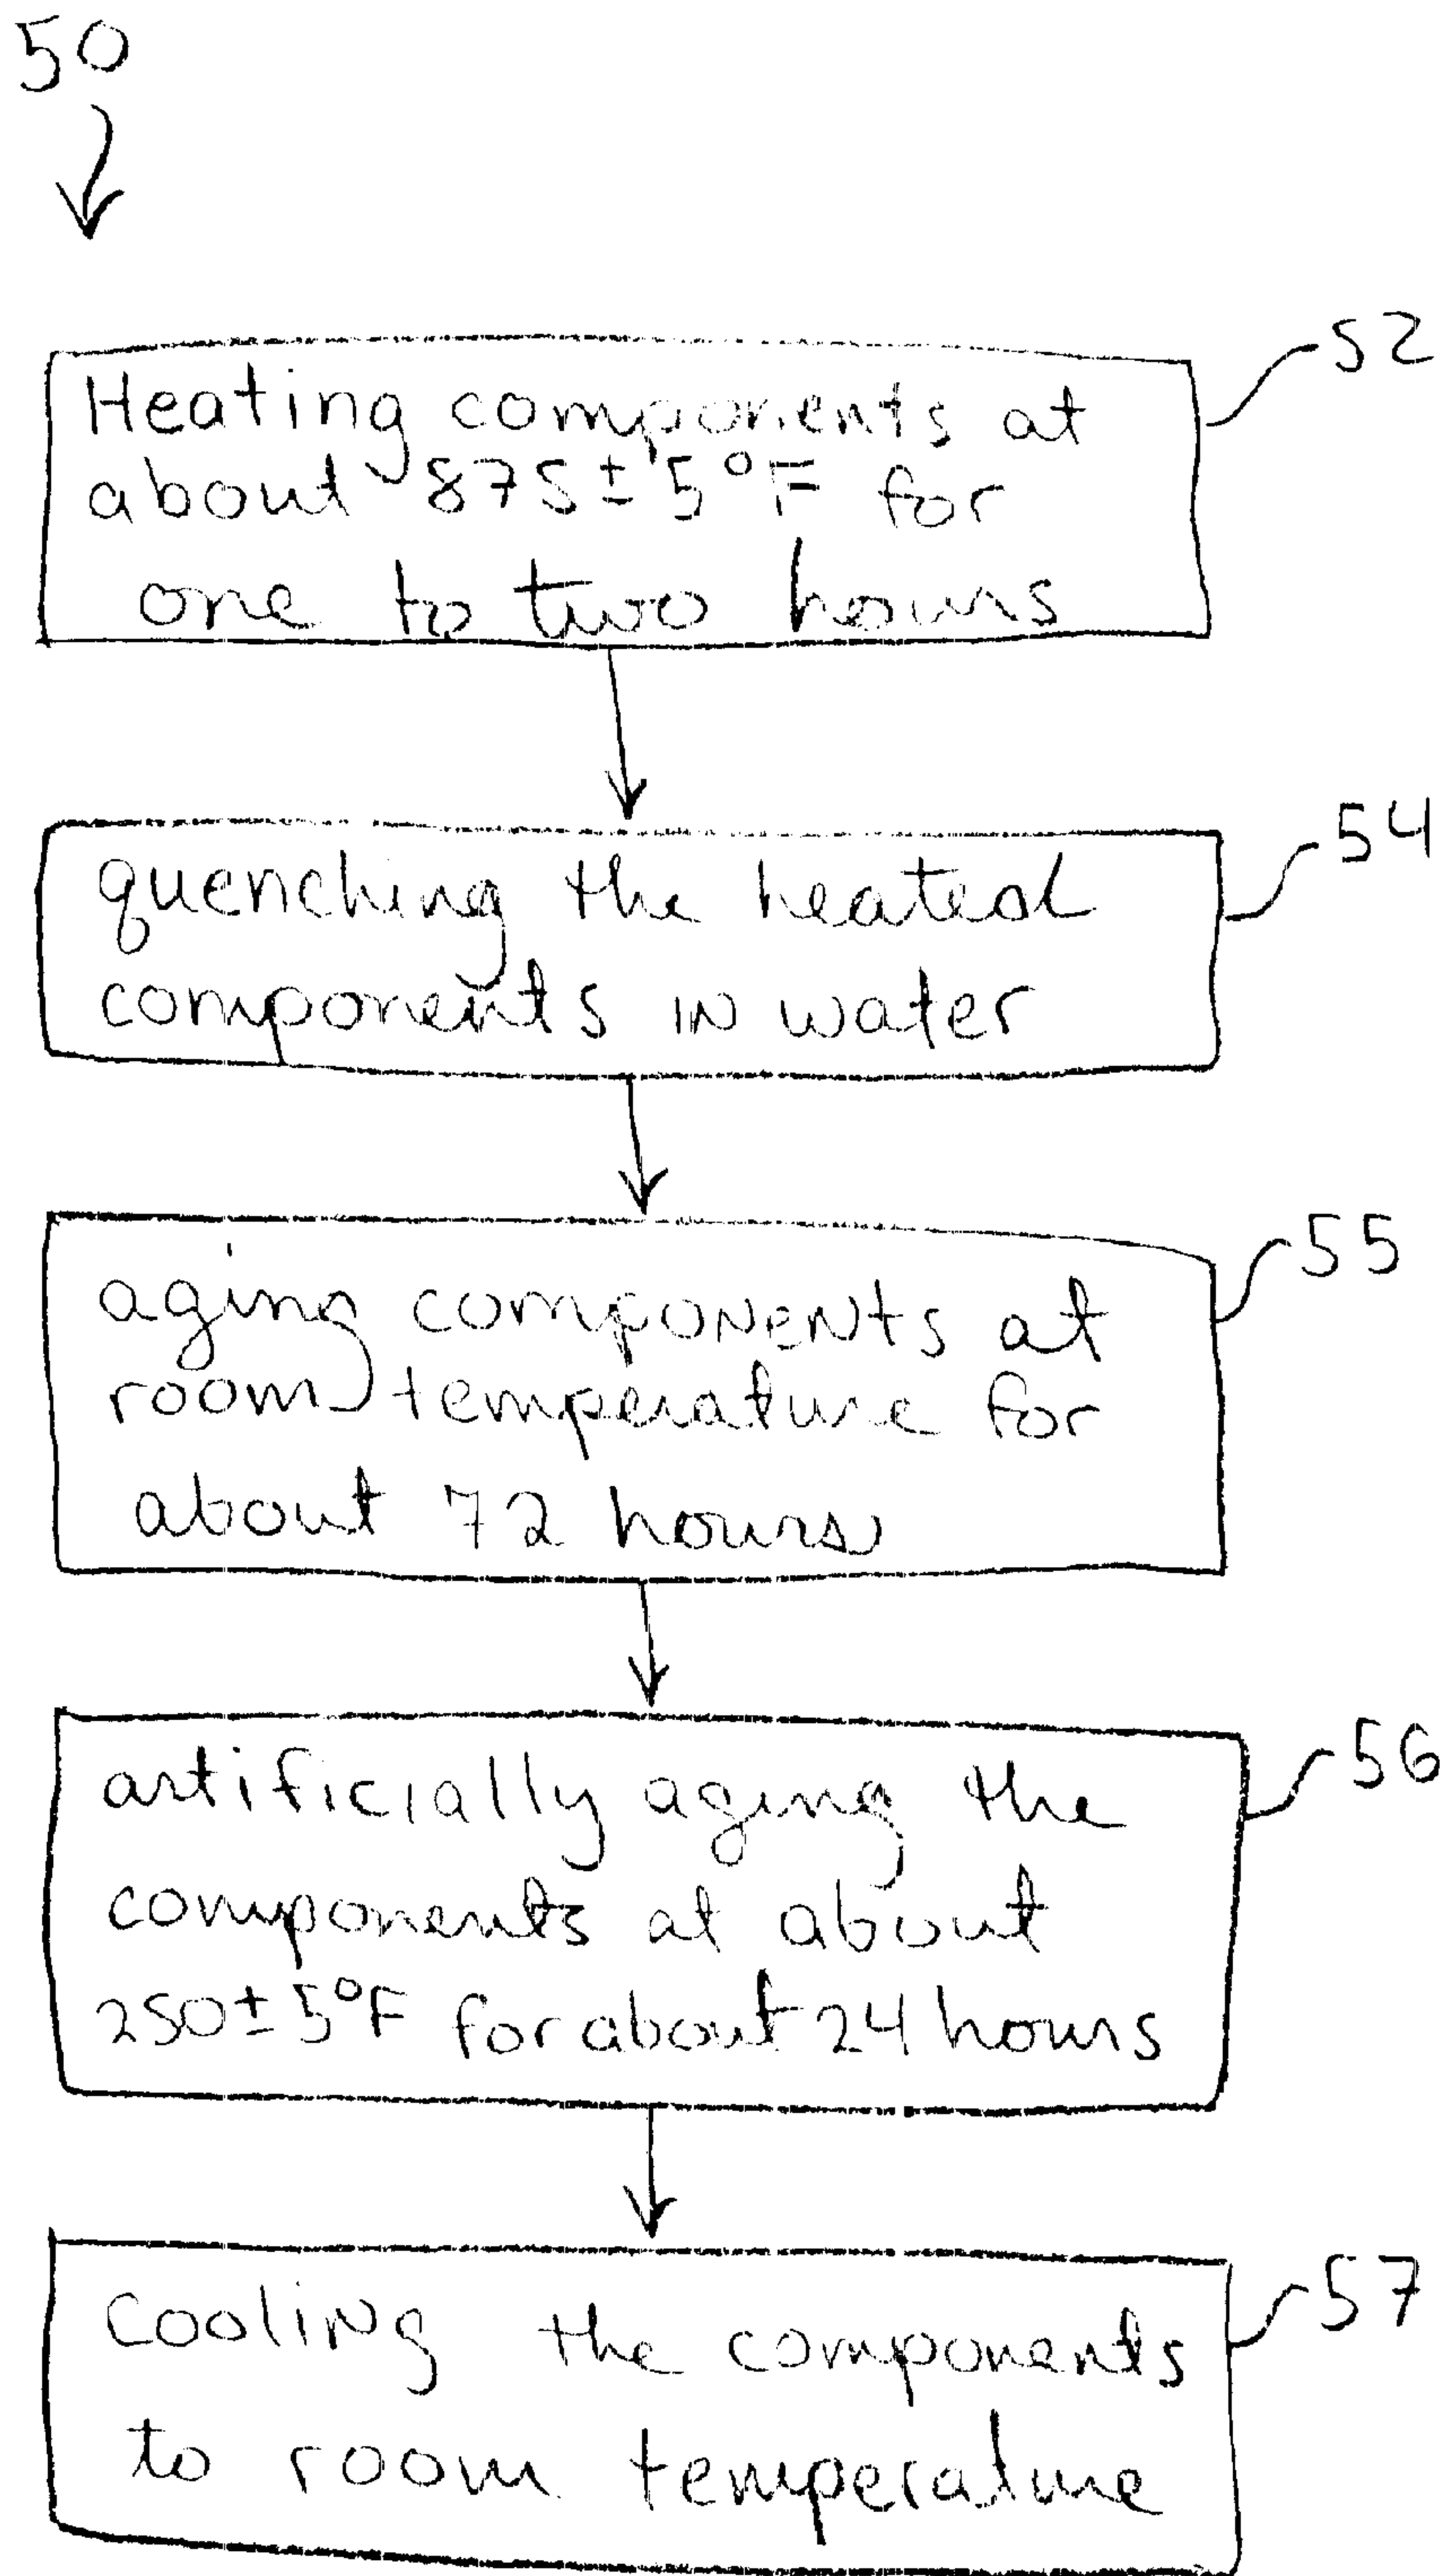 50
52
Heating components at
about 875 ± 5 °F for
one to two hours
54
quenching the heated
components in water
55
aging components at
room temperature for
about 72 hours
56
artificially aging the
components at about
250 ± 5 °F for about 24 hours
57
cooling the components
to room temperature